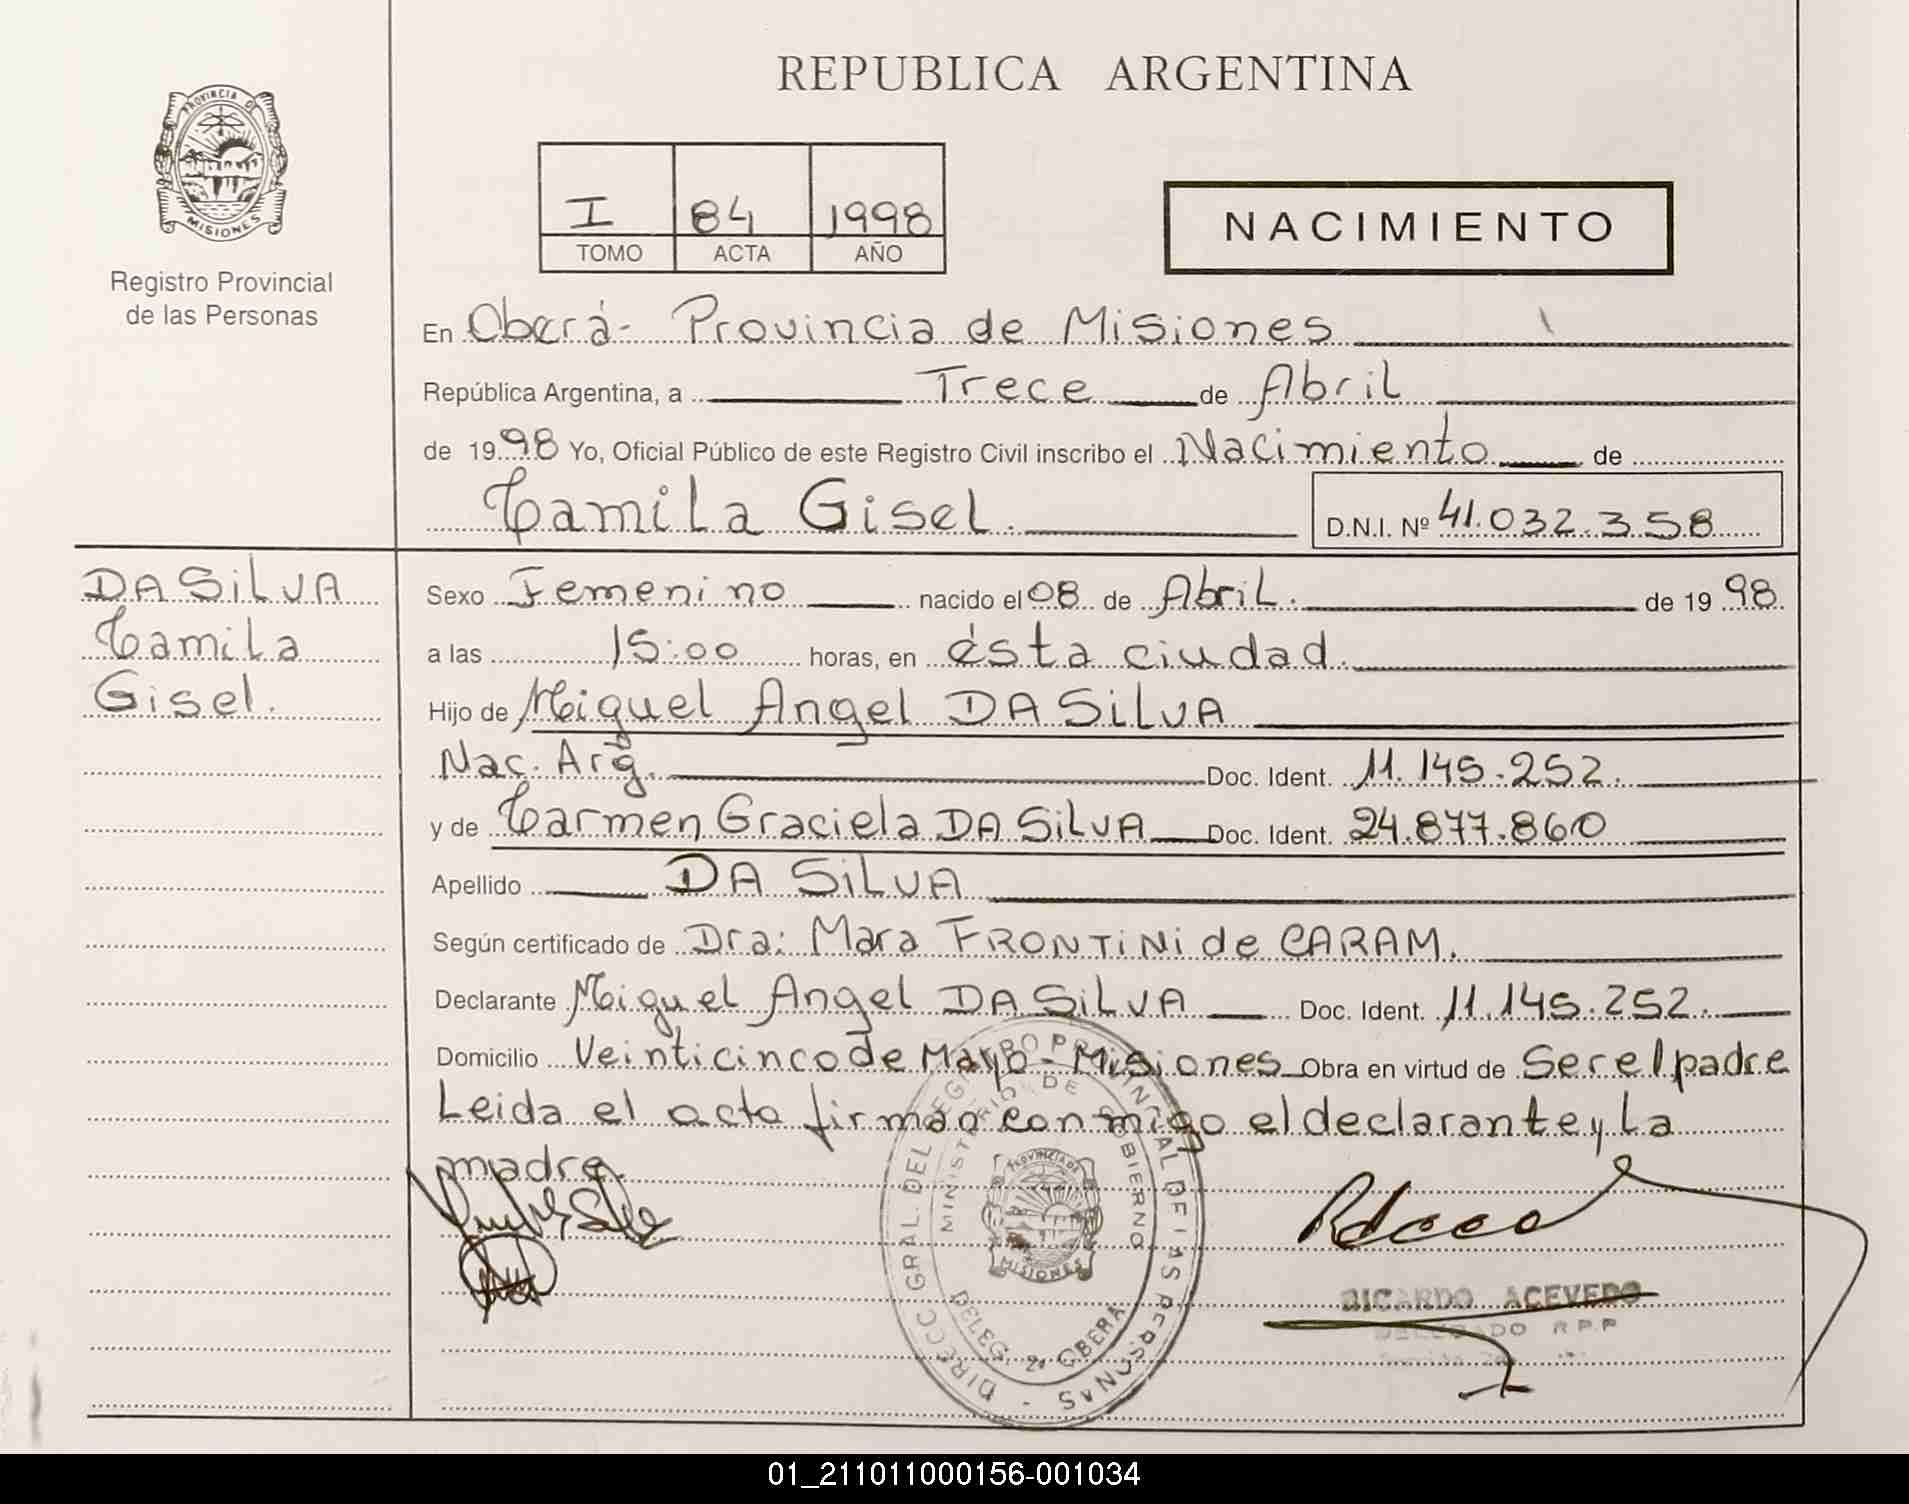 REPUBLICA ARGENTINA
PROVINCIA DE
MISIONES
Registro Provincial
de las Personas
I 84 1998
TOMO ACTA AÑO
NACIMIENTO
En Oberá - Provincia de Misiones
República Argentina, a Trece de Abril
de 1998 Yo, Oficial Público de este Registro Civil inscribo el Nacimiento de
Camila Gisel.
D.N.I. Nº 41.032.358
DA SILVA
Camila
Gisel.
Sexo Femenino nacido el 08 de Abril. de 1998
a las 15:00 horas, en ésta ciudad.
Hijo de Miguel Angel DA SILVA
Nac. Arg. Doc. Ident. 11.145.252.
y de Carmen Graciela DA SILVA Doc. Ident. 24.877.860
Apellido DA SILVA
Según certificado de Dra: Mara FRONTINI de CARAM.
Declarante Miguel Angel DA SILVA Doc. Ident. 11.145.252.
Domicilio Veinticinco de Mayo - Misiones Obra en virtud de Ser el padre
Leida el acta firman conmigo el declarante y La
madre.
DIRECC GRAL. DEL REGISTRO PROVINCIAL DE LAS PERSONAS
MINISTERIO DE GOBIERNO
PROVINCIA DE
MISIONES
DELEG. 2ª OBERA
RICARDO ACEVEDO
DELEGADO R P P
01_211011000156-001034